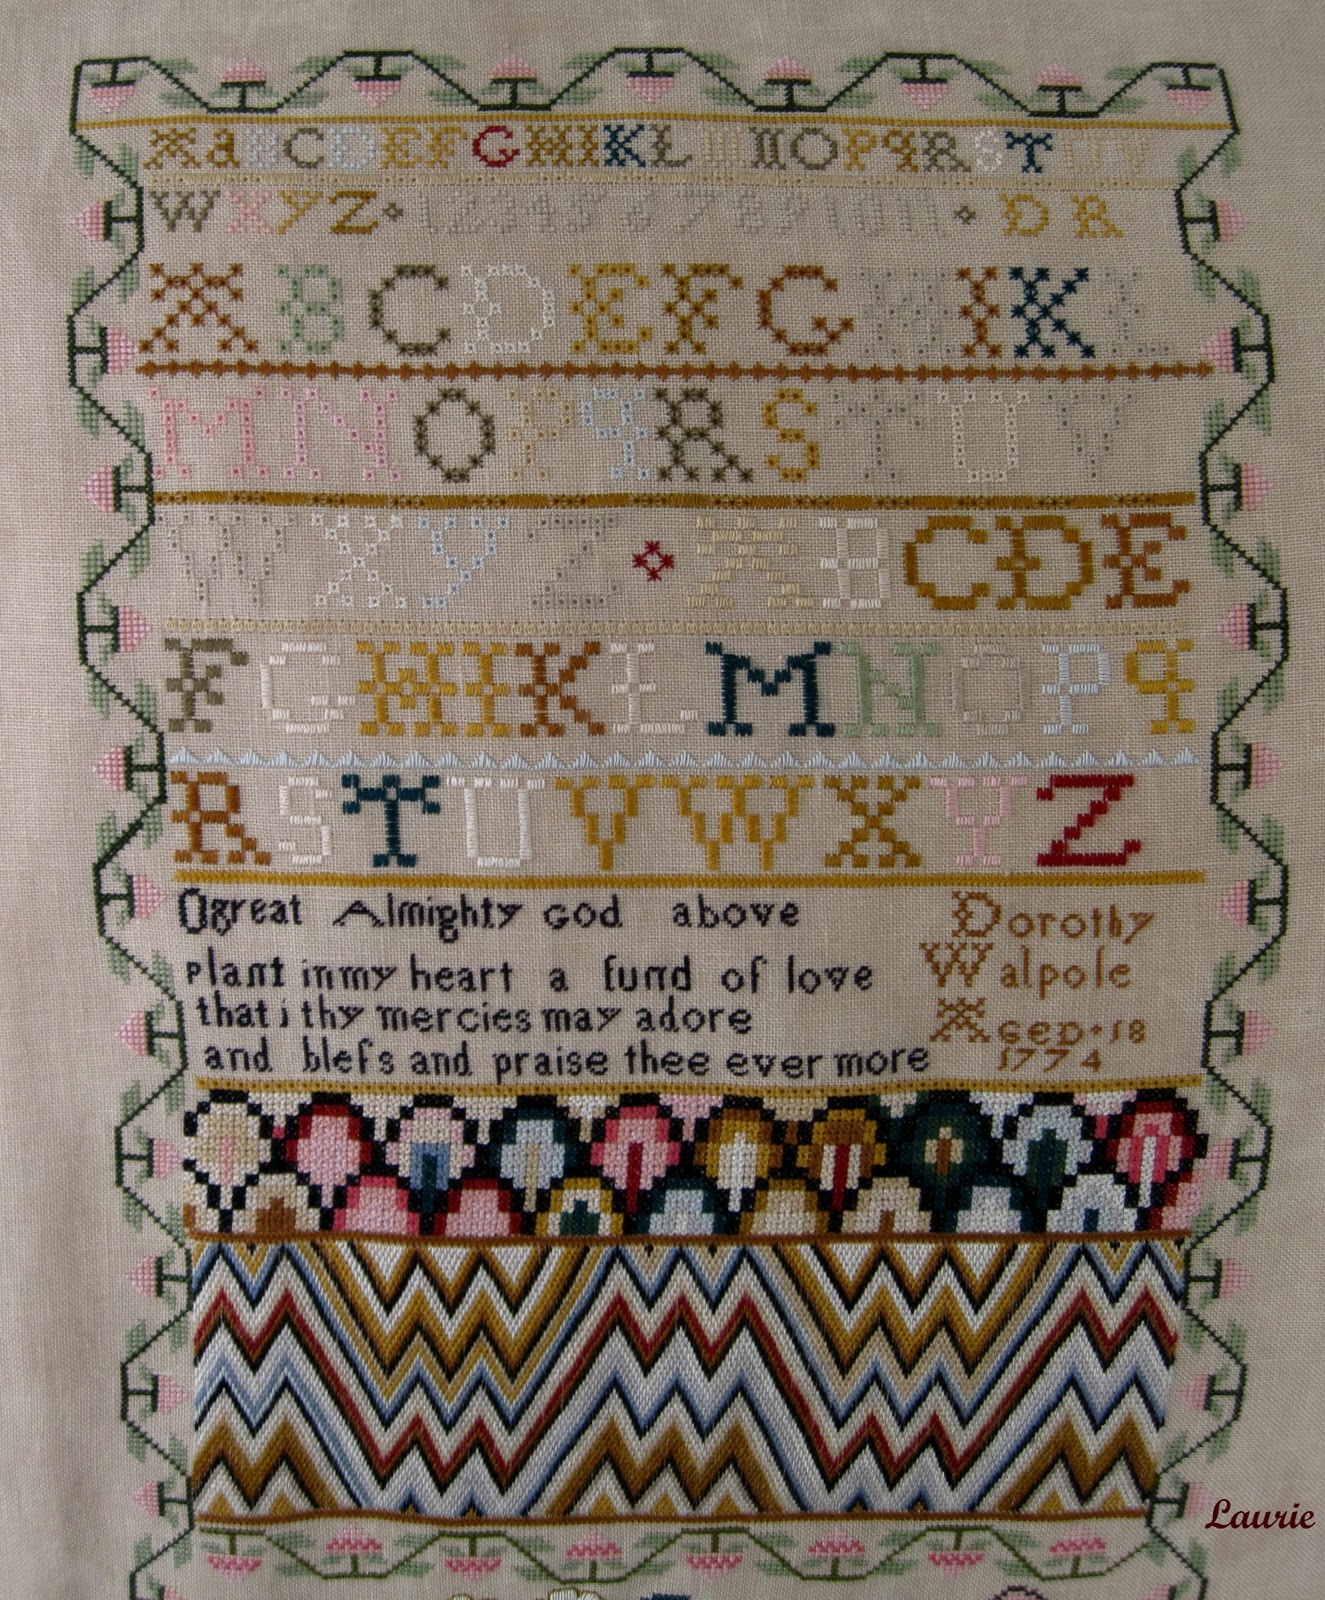 A a B C D E F G H I K L M N O P Q R S T U V
W X Y Z 1 2 3 4 5 6 7 8 9 10 11 D R
A B C D E F G H I K L
M N O P q R S T U V
W X y Z A B C D E
F G H I K L M N O P q
R S T U V W X Y Z
O great Almighty God above
plant in my heart a fund of love
that i thy mercies may adore
and blefs and praise thee ever more
Dorothy
Walpole
Aged 18
1774
Laurie